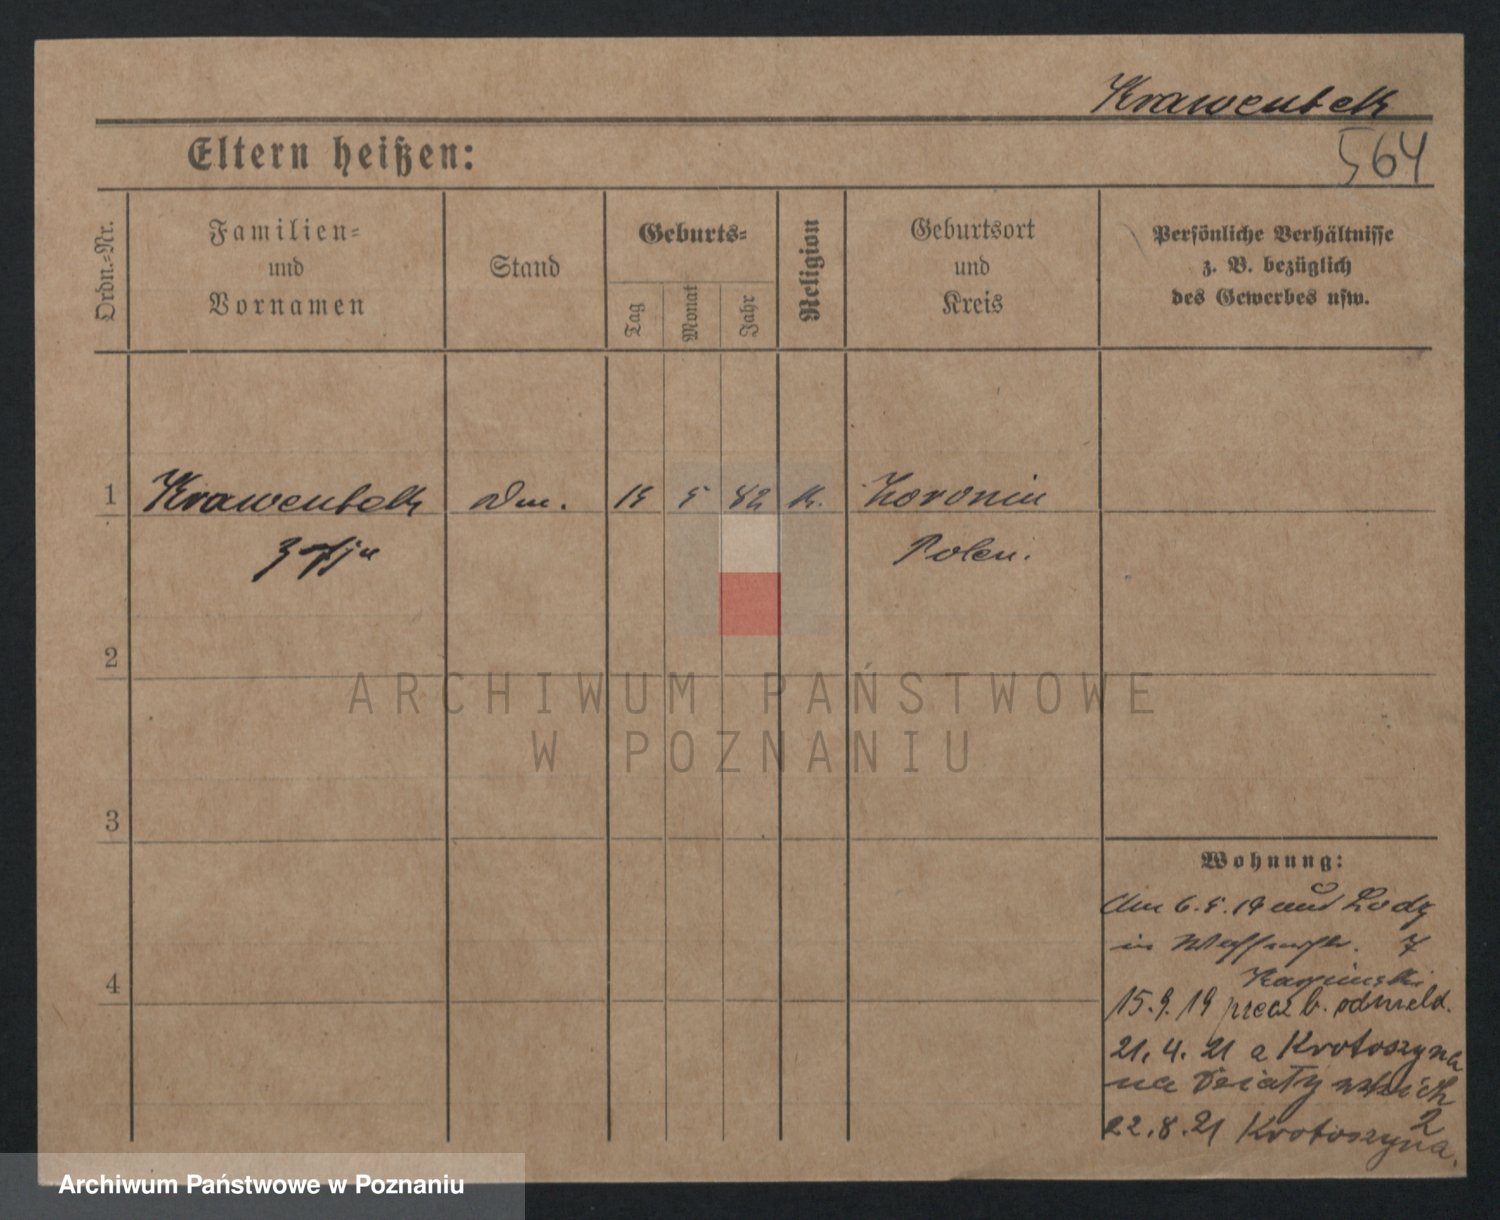 Krawentek
564
Eltern heißen:
Ordn.-Nr.
Familien-
und
Vornamen
Stand
Geburts-
Tag
Monat
Jahr
Religion
Geburtsort
und
Kreis
Persönliche Verhältnisse
z. B. bezüglich
des Gewerbes usw.
1 Krawentek 82 K.
Polen.
2
ARCHIWUM PAŃSTWOWE
W POZNANIU
3
Wohnung:
Am 6.5.19 aus Lodz
in 7
4
15.9.19 precz b. odmeld.
21.4.21 z Krotoszyna
na
2
22.8.21 Krotoszyna.
Archiwum Państwowe w Poznaniu